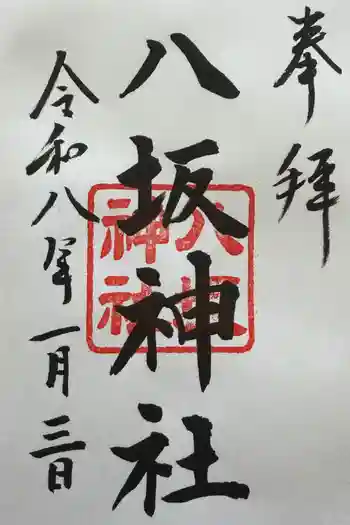 奉拝
八坂神社
八坂
神社
令和八年一月三日